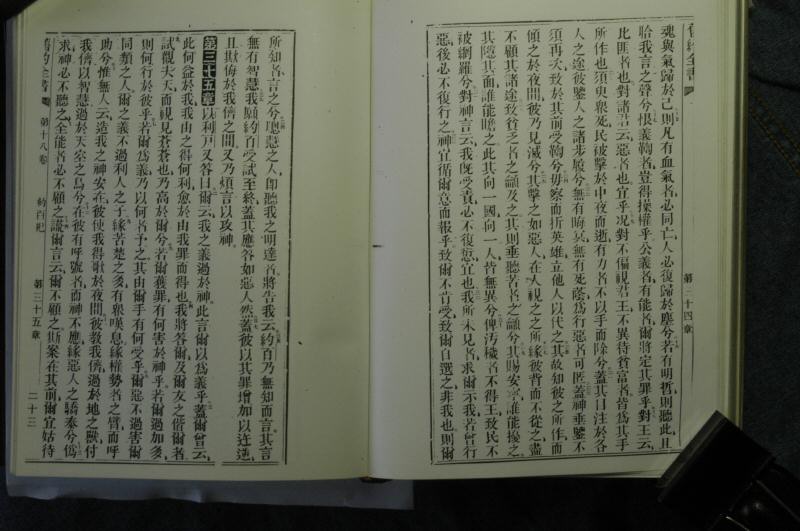 舊約全書
魂與氣歸於己則凡有血氣者必同亡人必復歸於塵兮若有明哲則聽此且
聆我言之聲兮恨義鞫者豈得操權乎公義者有能者爾將定其罪乎對王云、
比匪者也對諸君云惡者也宜乎况對不偏視君王不異待貧富者皆爲其手
所作也須臾衆死民被擊於中夜而逝有力者不以手而除兮蓋其目注於各
人之途彼鑒人之諸步履兮無有晦冥無有死蔭爲行惡者可匿蓋神垂鑒不
須再次致於其前受鞫兮毋察而折英雄立他人以代之其故知彼之所作而
傾之於夜間彼乃見滅兮其擊之如惡人在人視之之所緣彼背而不從之盡
不顧其諸途致貧乏者之籲及之其則垂聽苦者之籲兮其賜安寧誰能擾之
其隱其面誰能瞻之此其向一國向一人皆無異兮俾汚穢者不得王致民不
被網羅兮對神言云我旣受責必不復愆宜也我所未見者求爾示我若曾行
惡後必不復行之神宜循爾意而報乎致爾不肯受致爾自選之非我也則爾
第三十四章
所知者言之兮聰慧之人卽聽我之明達者將告我云約百乃無知而言其言
無有智慧我願約百受試至終蓋其應答如惡人然蓋彼以其罪增加以迕逆
且欺侮於我儕之間又乃煩言以攻神
第三十五章 以利戸又答曰爾云我之義過於神此言爾以爲義乎蓋爾曾云
此何益於我我由之得何利愈於由我罪而得也我將答爾及爾友之偕爾者
試觀夫天而視見蒼蒼也乃高於爾兮若爾獲罪有何害於神乎若爾過加多
則何行於彼乎若爾爲義乃以何者予之其由爾手有何受乎爾惡不過害爾
同類之人爾之義不過利人之子緣苦楚之多有衆嘆息緣權勢者之臂而呼
助兮惟無人云造我之神安在彼使我得歌於夜間彼教我儕過於地之獸付
我儕以智慧過於天空之鳥兮在彼有呼號者而神不應緣惡人之驕泰兮爲
求神必不聽之全能者必不顧之讆爾言云爾不顧之斯案在其前爾宜姑待
舊約全書
第十八卷
約百𥿄
第三十五章
二十三